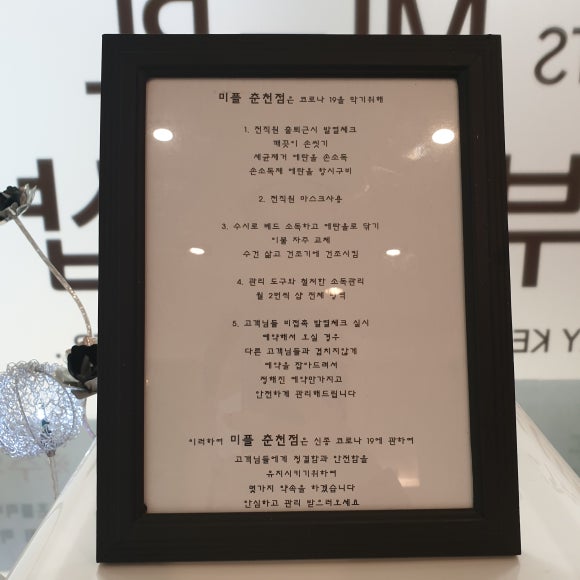 미플 춘천점은 코로나 19을 막기위해
1. 전직원 출퇴근시 발열체크
깨끗이 손씻기
세균제거 에탄올 손소독
손소독제 에탄올 항시구비
2. 전직원 마스크사용
3. 수시로 베드 소독하고 에탄올로 닦기
이불 자주 교체
수건 삶고 건조기에 건조시킴
4. 관리 도구와 철저한 소독관리
월 2번씩 샵 전체
5. 고객님들 비접촉 발열체크 실시
예약해서 오실 경우
다른 고객님들과 겹치지않게
예약을 잡아드려서
정해진 예약만가지고
안전하게 관리해드립니다
이러하여 미플 춘천점은 신종 코로나 19에 관하여
고객님들에게 청결함과 안전함을
유지시키기위하여
몇가지 약속을 하겠습니다
안심하고 관리 받으러오세요